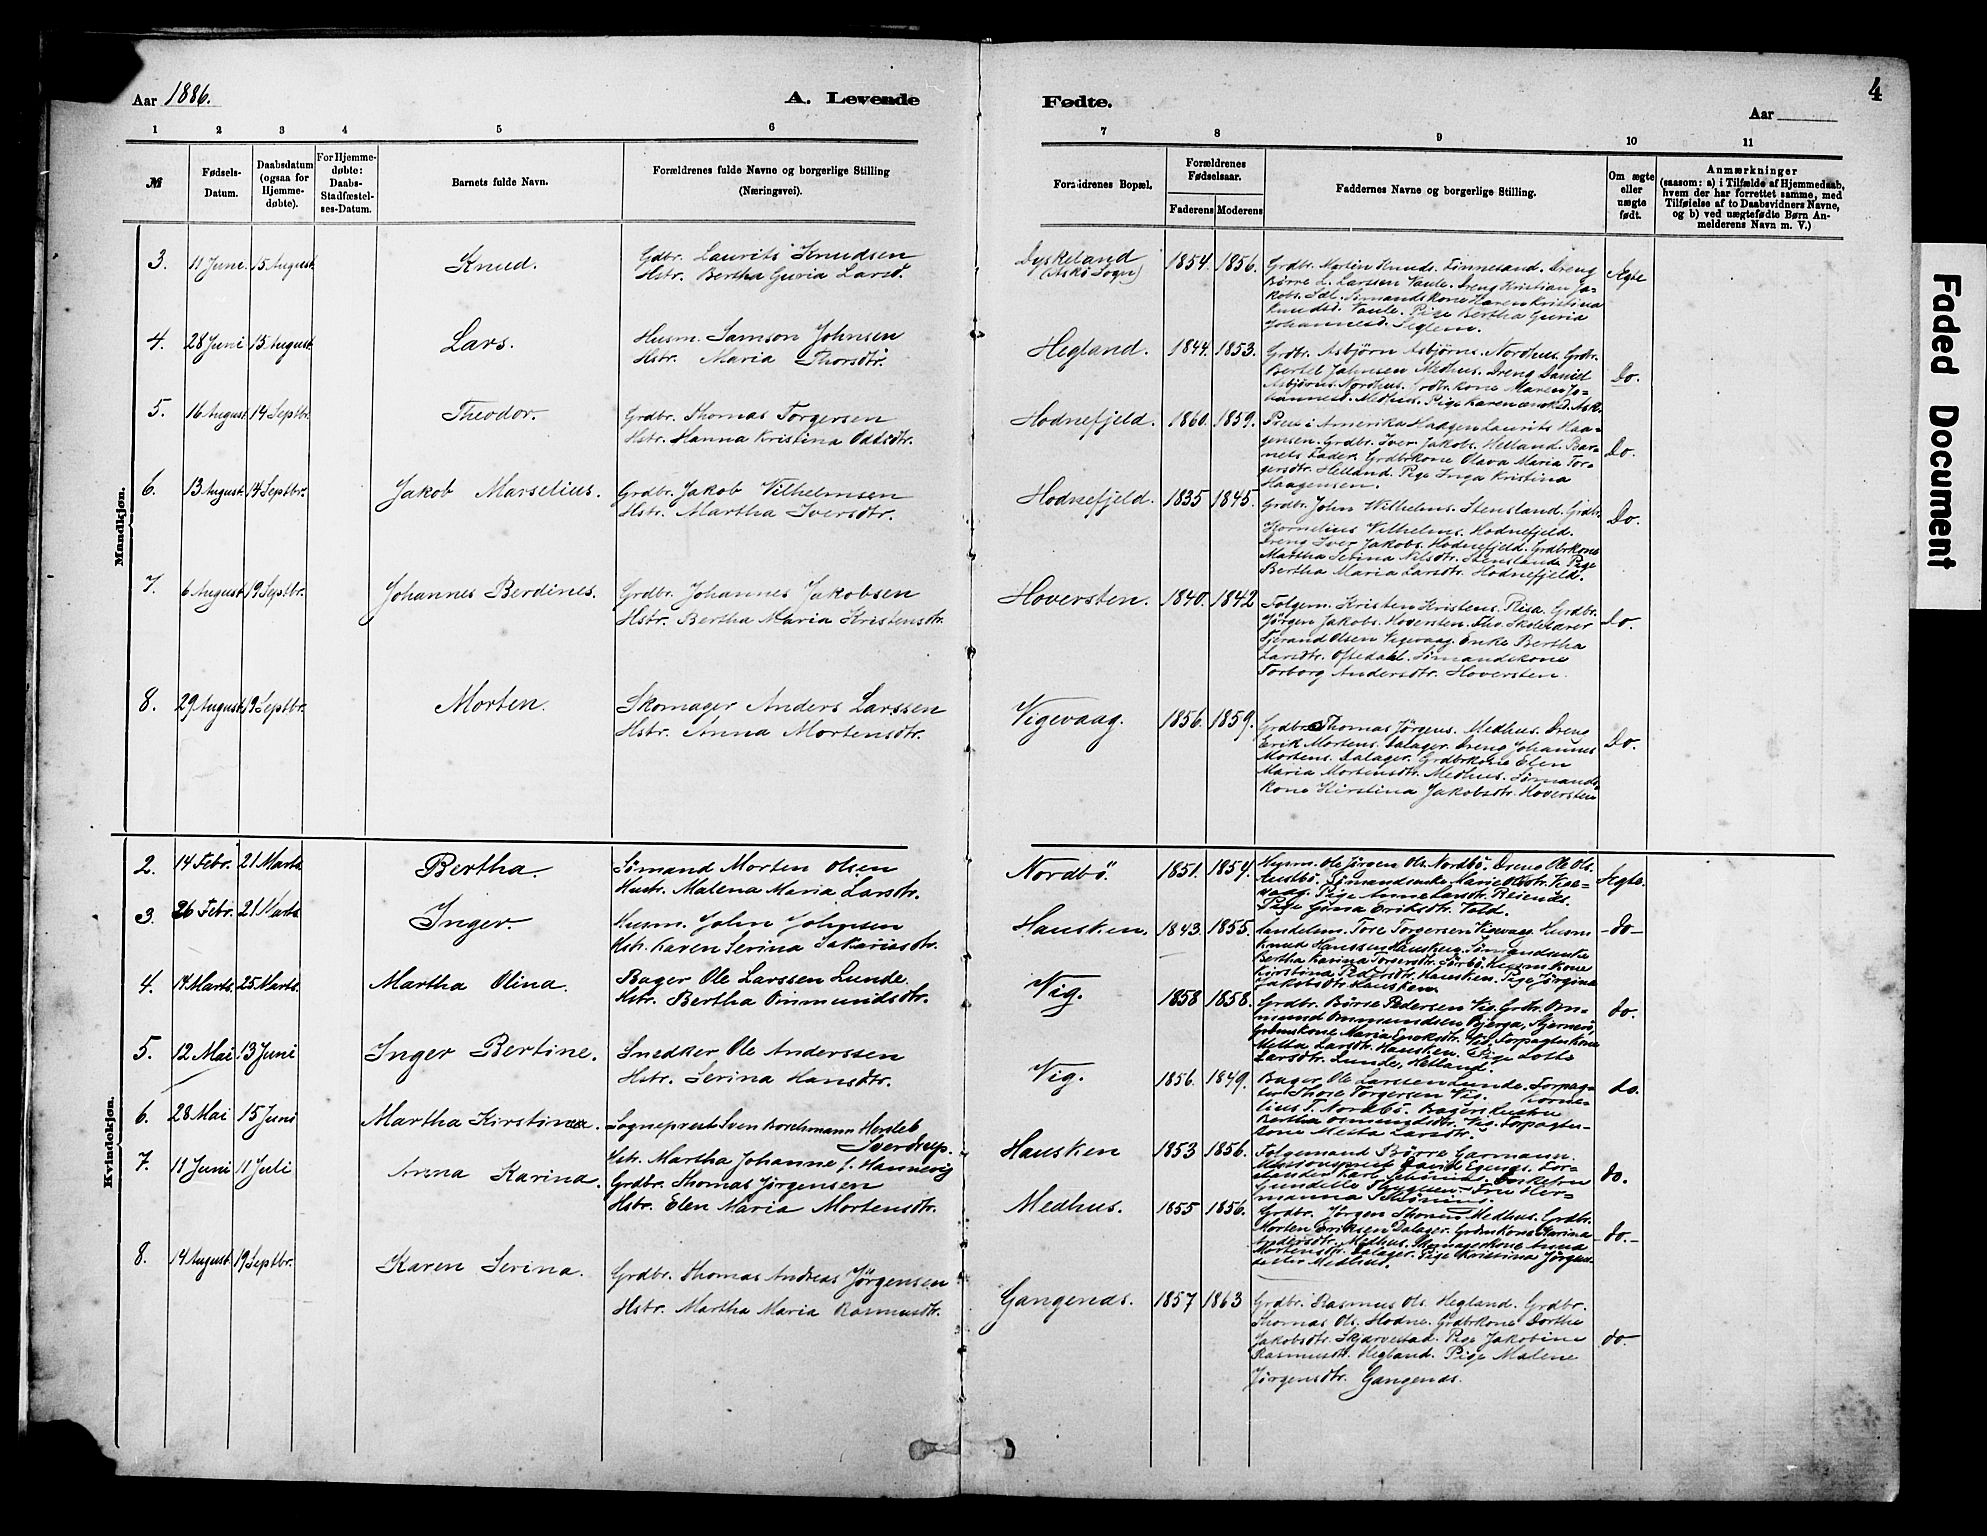 Aar 1886.
A. Levende
Fødte.
Aar
4
1 2 3 4 5 6
7 8 9 10 11
№
Fødsels-
Datum.
Daabsdatum
(ogsaa for
Hjemme-
døbte).
For Hjemme-
døbte:
Daabs-
Stadfæstel-
ses-Datum.
Barnets fulde Navn.
Forældrenes fulde Navne og borgerlige Stilling
(Næringsvei).
Forældrenes Bopæl.
Forældrenes
Fødselsaar.
Faderens Moderens
Faddernes Navne og borgerlige Stilling.
Om ægte
eller
uægte
født.
Anmærkninger
(saasom: a) i Tilfælde af Hjemmedaab,
hvem der har forrettet samme, med
Tilføielse af to Daabsvidners Navne,
og b) ved uægtefødte Børn An-
melderens Navn m. V.)
Faded Document
Mandkjøn.
3. 11 Juni. 15 August. Knud.
Gdbr. Laurits Knudsen
Hstr. Bertha Guria Larsd.
Dyskeland
(Askø Sogn)
1854. 1856.
Grdbr. Morten Knuds. Finnesand. Dreng
Børre L. Larssen Vaule. Dreng Kristian Ja-
kobs. Idl. Sømandskone Karen Kristina
Knudsd. Vaule. Pige Bertha Guria
Johannesd. Seglem.
Ægte
4. 28 Juni 15 August. Lars.
Husm. Samson Johnsen
Hstr. Maria Thorsdtr.
Hegland. 1844. 1853.
Grdbr. Asbjørn Asbjørns. Nordhus. Grdbr.
Bertel Johnsen Medhus. Dreng Daniel
Asbjørns. Nordhus. Grdbr.kone Maren Jo-
hannesd. Medhus. Pige Karen
Do.
5. 16 August 14 Septbr. Theodor.
Grdbr. Thomas Torgersen
Hstr. Hanna Kristina Oddsdtr.
Hodnefjeld. 1860. 1859.
i Amerika Haagen Laurits Haa-
gensen. Grdbr. Iver Jakobs. Helland. Bar-
nets Fader. Grdbrkone Olava Maria Tor-
gersdtr. Helland. Pige Inga Kristina
Haagensen.
Do.
6. 13 August. 14 Septbr. Jakob Marselius.
Grdbr. Jakob Vilhelmsen
Hstr. Martha Iversdtr.
Hodnefjeld. 1835 1845.
Grdbr. John Wilhelms. Stensland. Grdbr.
Kornelius Vilhelms. Hodnefjeld.
Dreng Iver Jakobs. Hodnefjeld. Grdbrkone
Martha Serina Nilsdtr. Stensland. Pige
Bertha Maria Larsdtr. Hodnefjeld.
Do.
7. 6 August. 19 Septbr. Johannes Berdines.
Grdbr. Johannes Jakobsen
Hstr. Bertha Maria Kristensdtr.
Hoversten. 1840. 1842
Folgem. Kristen Kristens. Risa. Grdbr.
Jørgen Jakobs. Hoversten. Fhv. Skolelærer
Tjerand Olsen Vigevaag. Enke Bertha
Larsdtr. Oftedahl. Sømandskone
Torborg Andersdtr. Hoversten.
Do.
8. 29 August. 19 Septbr. Morten.
Skomager Anders Larssen
Hstr. Anna Mortensdtr.
Vigevaag. 1856. 1859.
Grdbr. Thomas Jörgens. Medhus. Dreng
Erik Mortens. Dalager. Dreng Johannes
Mortens. Dalager. Grdbrkone Elen
Maria Mortensdtr. Medhus. Sømands-
kone Kirstina Jakobsdtr. Hoversten
Do.
Kvindekjøn.
2. 14 Febr. 21 Marts Bertha.
Sömand Morten Olsen
Hustr. Malena Maria Larsdtr.
Nordbö. 1851. 1859.
Husm. Ole Jørgen Ols. Nordbö. Dreng Ole Ols.
Austbö. Sømandsenke Marie Olsdtr. Vige-
vaag. Pige Anne Larsdtr. Reienes.
Pige Gina Eriksdtr. Vold.
Ægte.
3. 26 Febr. 21 Marts Inger.
Husm. John Johnsen
Hstr. Karen Serina Sakariasdtr.
Hausken. 1843. 1855.
Handelsm. Tore Torgersen Vigevaag. Husm
Knud Hanssen Hausken. Sømandsenke
Bertha Karina Torgersdtr. Sörbö. Husmkone
Kirstina Pedersdtr. Hausken. Pige Jørgine
Jakobsdtr. Hausken.
-do-
4. 14 Marts. 25 Marts. Martha Olina.
Bager Ole Larssen Lunde.
Hstr. Bertha Ommundsdtr.
Vig. 1858 1858.
Grdbr. Börre Pedersen Vig. Grdbr. Om-
mund Ommundsen Bjerga, Hjermerö,
Grdmskone Maria Enoksdtr. Vig. Forpagterkone
Metta Larsdtr. Hausken. Pige Lotte
Larsdtr. Lunde, Hetland.
do.
5. 12 Mai 13 Juni Inger Bertine.
Snedker Ole Anderssen
Hstr. Serina Hansdtr.
Vig. 1856. 1849.
Bager Ole Larssen Lunde. Forpag-
ter Thore Torgersen Vig. Korne-
lius T. Nordbö. Bagers Hustru
Bertha Osmundsdtr. Vig. Forpagter-
kone Metta Larsdtr.
do.
6. 28 Mai 15 Juni Martha Kirstine.
Sogneprest Sven Borchmann Hersleb
Sverdrup.
Hstr. Martha Johanne f. Hannevig
Hausken 1853 1856.
Folgemand Börre Garmann.
do.
7. 11 Juni 11 Juli Anna Karina.
Grdbr. Thomas Jörgensen
Hstr. Elen Maria Mortensdtr.
Medhus. 1855 1856.
Grdbr. Jörgen Thomas. Medhus. Grdbr.
Morten Eriksen Dalager. Grdmkone Karina
Andersdtr. Medhus. Skomagerkone Anna
Mortensdtr. Dalager. Pige Kristina Jörgens-
datter Medhus.
-do.-
8. 14 August. 19 Septbr. Karen Serina.
Grdbr. Thomas Andreas Jørgensen
Hstr. Martha Maria Rasmusdtr.
Gangenæs. 1857 1863
Grdbr. Rasmus Ols. Hegland. Grdbr.
Thomas Ols. Hodne. Grdbrkone Dorthe
Jakobsdtr. Skjærvestad. Pige Jakobine
Rasmusdtr. Hegland. Pige Malene
Jörgensdtr. Gangenæs.
do-